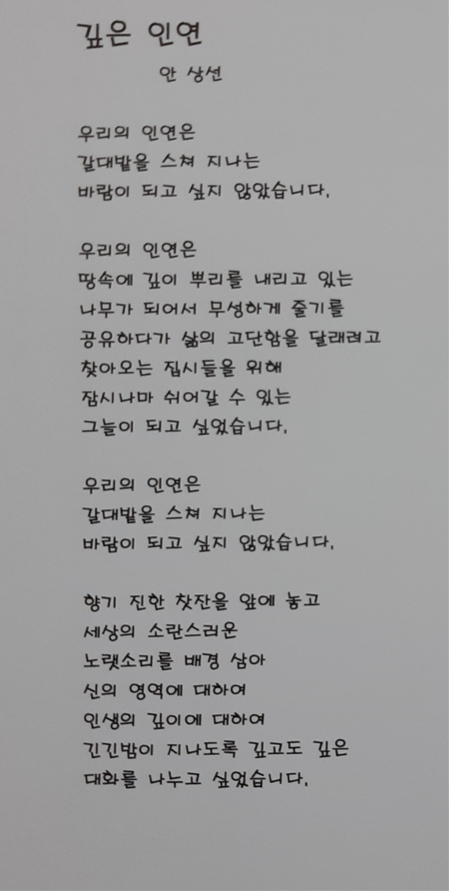 깊은 인연
안 상선
우리의 인연은
갈대밭을 스쳐 지나는
바람이 되고 싶지 않았습니다.
우리의 인연은
땅속에 깊이 뿌리를 내리고 있는
나무가 되어서 무성하게 줄기를
공유하다가 삶의 고단함을 달래려고
찾아오는 집시들을 위해
잠시나마 쉬어갈 수 있는
그늘이 되고 싶었습니다.
우리의 인연은
갈대밭을 스쳐 지나는
바람이 되고 싶지 않았습니다.
향기 진한 찻잔을 앞에 놓고
세상의 소란스러운
노랫소리를 배경 삼아
신의 영역에 대하여
인생의 깊이에 대하여
긴긴밤이 지나도록 깊고도 깊은
대화를 나누고 싶었습니다.